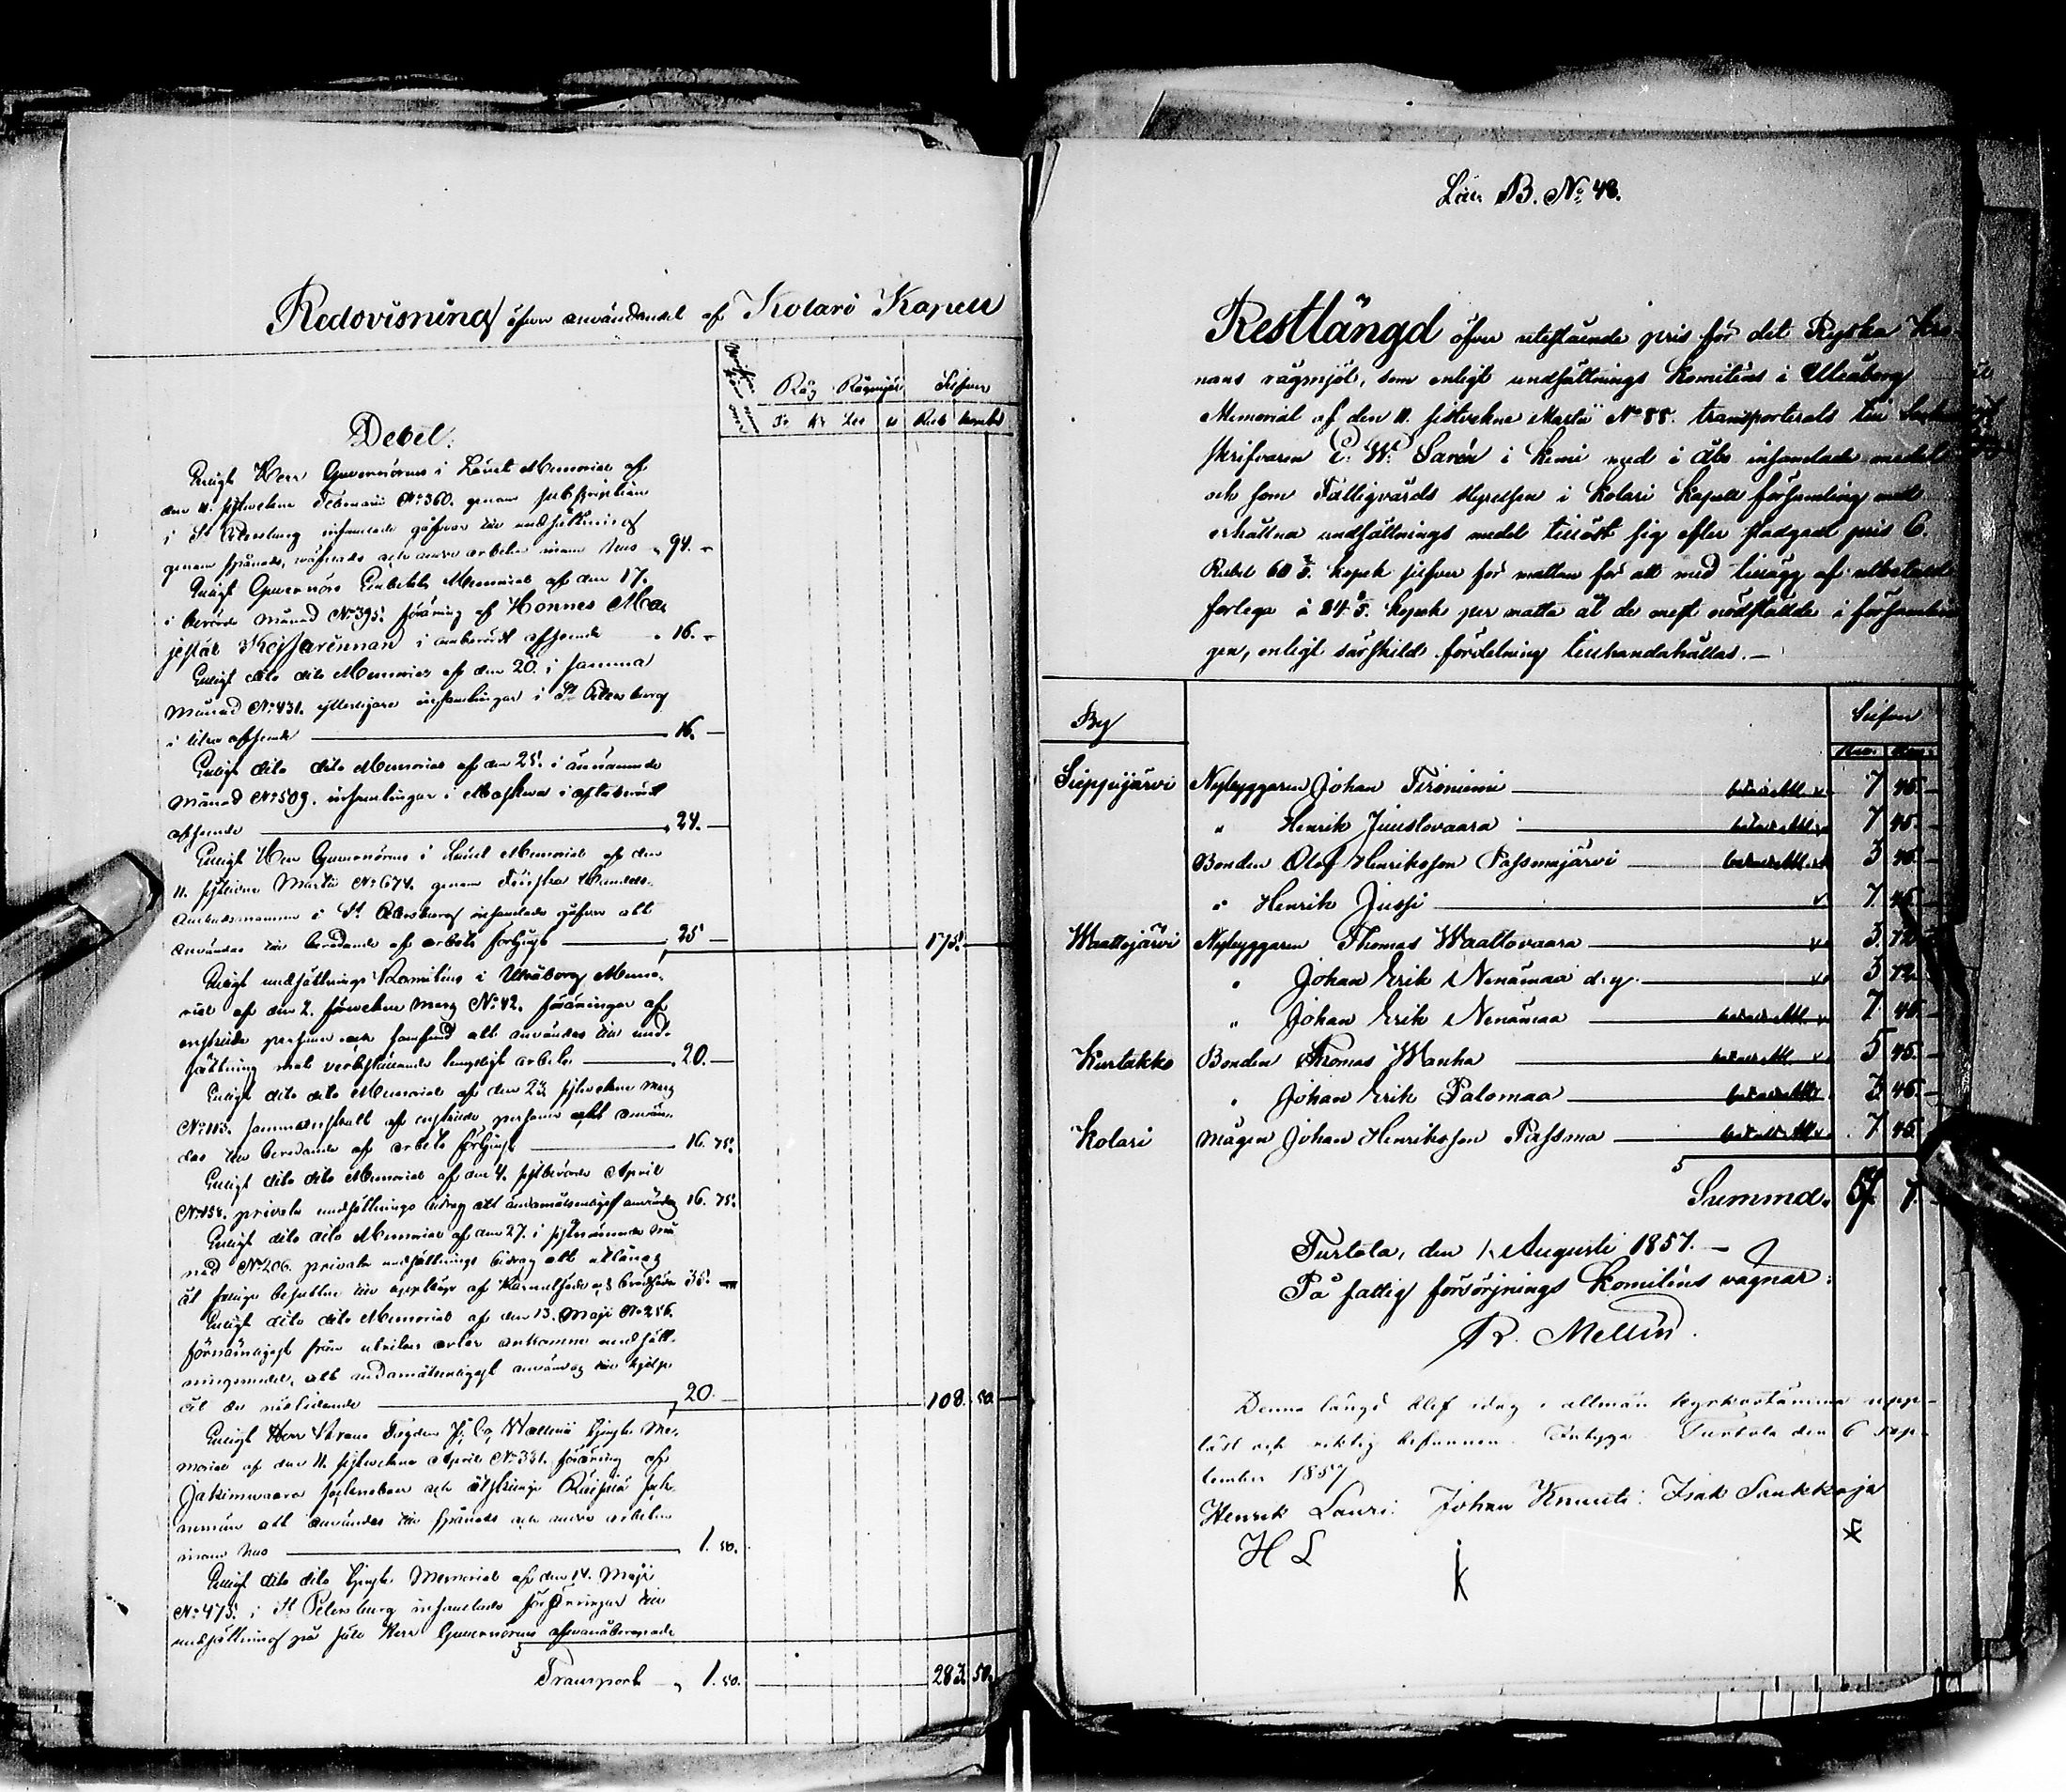 Redovisning öfver användandet af Kolari Kapell
Råg Rågmjöl Silfver
Debet.
Enligt Herr Guvernörens i Länet Memorial af
den 11. sistvekne Februarii No 360. genom subskription
i St Petersburg insamlade gåfvor till undsättning
genom spånads, väfnads och andre arbeten inom hus 94. -
Enligt Guvernörs Embetets Memorial af den 17.
i berörde månad No 395. föräring af Hennes Ma-
jestät Kejsarinnan i omberördt afseende 16. -
Enligt dito dito Memorial af den 20. i samma
månad No 431. ytterligare insamlingar i St Petersburg
i lika afseende 16. -
Enligt dito dito Memorial af den 25. i ännämnde
månad No 509. insamlingar i Moskwa i oftaberördt
afseende 24. -
Enligt Herr Guvernörens i Länet Memorial af den
11. sistvekne Martii No 674. genom Finska Handels-
i St Petersburg insamlade gåfvor att
användas till beredande af arbets förtjenst 25 - 175.
Enligt undsättnings Komiténs i Uleåborg Memo-
rial af den 2. förvekne Mars No 42. föräringar af
enskilde personer och samfund att användas till und-
sättning mot verkställande lämpligt arbete 20. -
Enligt dito dito Memorial af den 24. sistvekne Mars
No 113. sammanskott af enskilde personer att använ-
das till beredande af arbets förtjenst 16. 75.
Enligt dito dito Memorial af den 4. sistberörde April
No 138. privata undsättnings bidrag att ändamålsenligast användas 16. 75.
Enligt dito dito Memorial af den 27. i sistnämnde må-
nad No 206. privata undsättnings bidrag att utlånas
åt fattige behöfvande till uppköp af 35. -
Enligt dito dito Memorial af den 13. Maji No 256.
förnämligast från utrikes orter ankomne undsätt-
ningsmedel, att ändamålsenligast användas till hjelp
åt de nödlidande 20. - 108. 50.
Enligt Herr Krono Fogden Wallins Memo-
rial af den 11. sistvekne April No 321. föräring af
Jakimvaara sockneboer och
att användas till spånads och andre arbeten
inom hus 1. 50.
Enligt dito dito Memorial af den 14. Maji
No 475. i St Petersburg insamlade föräringar till
undsättning på sätt Herr Guvernörens
Transport 1. 50. 283. 50.
Litt. B. No 48.
Restlängd öfver utestående pris för det Ryska Kro-
nans rågmjöl, som enligt undsättnings Komiténs i Uleåborg
Memorial af den 11. sistvekne Martii No 88. transporterats till
skrifvaren E. W. Savén i Kemi med i Åbo insamlade medel
och som Fattigvårds styrelsen i Kolari Kapell församling med
erhållna undsättnings medel tillöst sig efter stadgadt pris 6.
Rubel 60 5/8. kopek silfver för mattan för att med tillägg af utbetald
forlega à 84 3/8. kopek per matta åt de mest nödställde i församlin-
gen, enligt särskild fördelning tillhandahållas. -
By Silfver
Sieppijärvi Nybyggaren Johan Tironiemi 7 45. -
" Henrik Juustovaara 7 45. -
Bonden Olof Henriksson Passmajärvi 3 45. -
" Henrik Jussi 7 45. -
Waattojärvi Nybyggaren Thomas Waattovaara 3 72
" Johan Erik Nenämaa d.y. 3 72. -
" Johan Erik Nenämaa 7 45. -
Kurtakko Bonden Thomas Wanha 5 45. -
" Johan Erik Palomaa 3 45. -
Kolari Mågen Johan Henriksson Passma 7 45. -
Summa. 57 7. -
Turtola, den 1. Augusti 1857. -
På fattig försörjnings Komiténs vägnar:
R. Mellin.
Denna längd blef idag i allmän kyrkostämma upp-
läst och riktig befunnen. Intyga. Turtola den 6 sep-
tember 1857
Henrik Lauri: Johan Knuuti: Isak Saukkoja
H L K